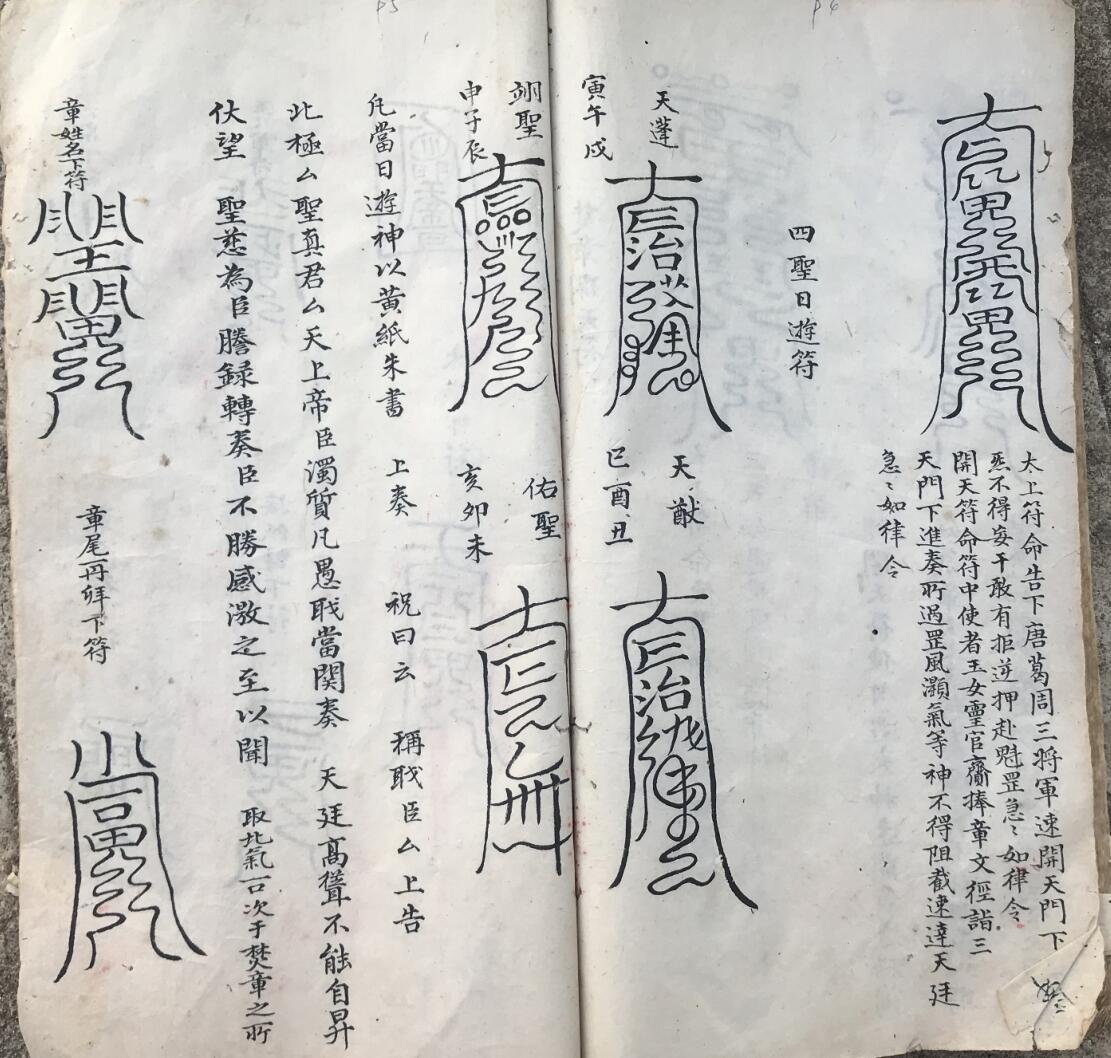 太上符命告下唐葛周三將軍速開天門下
炁不得妄干敢有拒逆押赴魁罡急〻如律令
開天符命符中使者玉女靈官齎捧章文徑詣三
天門下進奏所過罡風灝氣等神不得阻截速達天廷
急〻如律令
四聖日遊符
天蓬
寅午戌
天猷
巳酉丑
翊聖
申子辰
佑聖
亥卯未
凡當日遊神以黃紙朱書 上奏 祝曰云 稱戢臣厶上告
北極厶聖真君厶天上帝臣濁質凡愚戢當関奏 天廷高聳不能自昇
伏望 聖慈為臣謄録轉奏臣不勝感激之至以聞 取北氣一口次于焚章之所
章姓名下符
章尾再拜下符
P5
P4